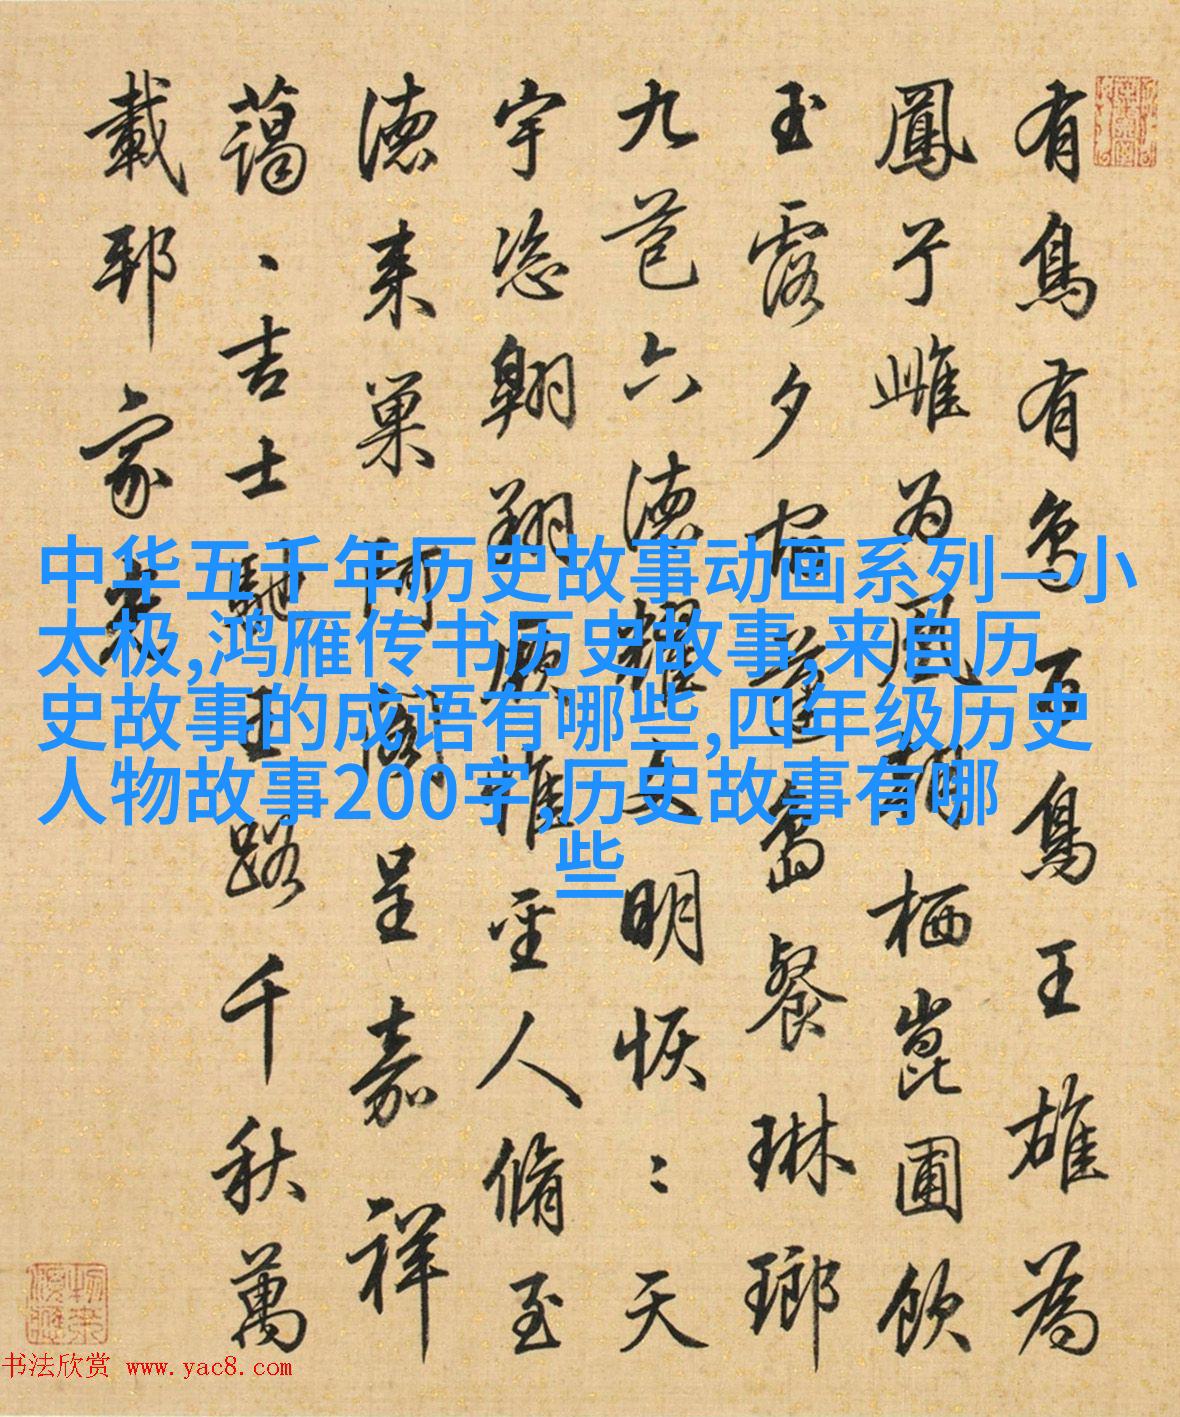 中华五千年历史故事动画系列—小
太极,鸿雁传书历史故事,来自历
史故事的成语有哪些,四年级历史
人物故事200字,历史故事有哪
些
有鳥有鳥百鳥王雄為
鳳兮雌为凰朝栖崑圃飲
玉露夕宿蓬島餐琳瑯
九苞六德耀文明恢〻天
宇恣翱翔顧惟聖人脩至
德来巢阿閣呈嘉祥
藹〻吉士馳王路千秋萬
載邦家光
书法欣赏 www.yac8.com